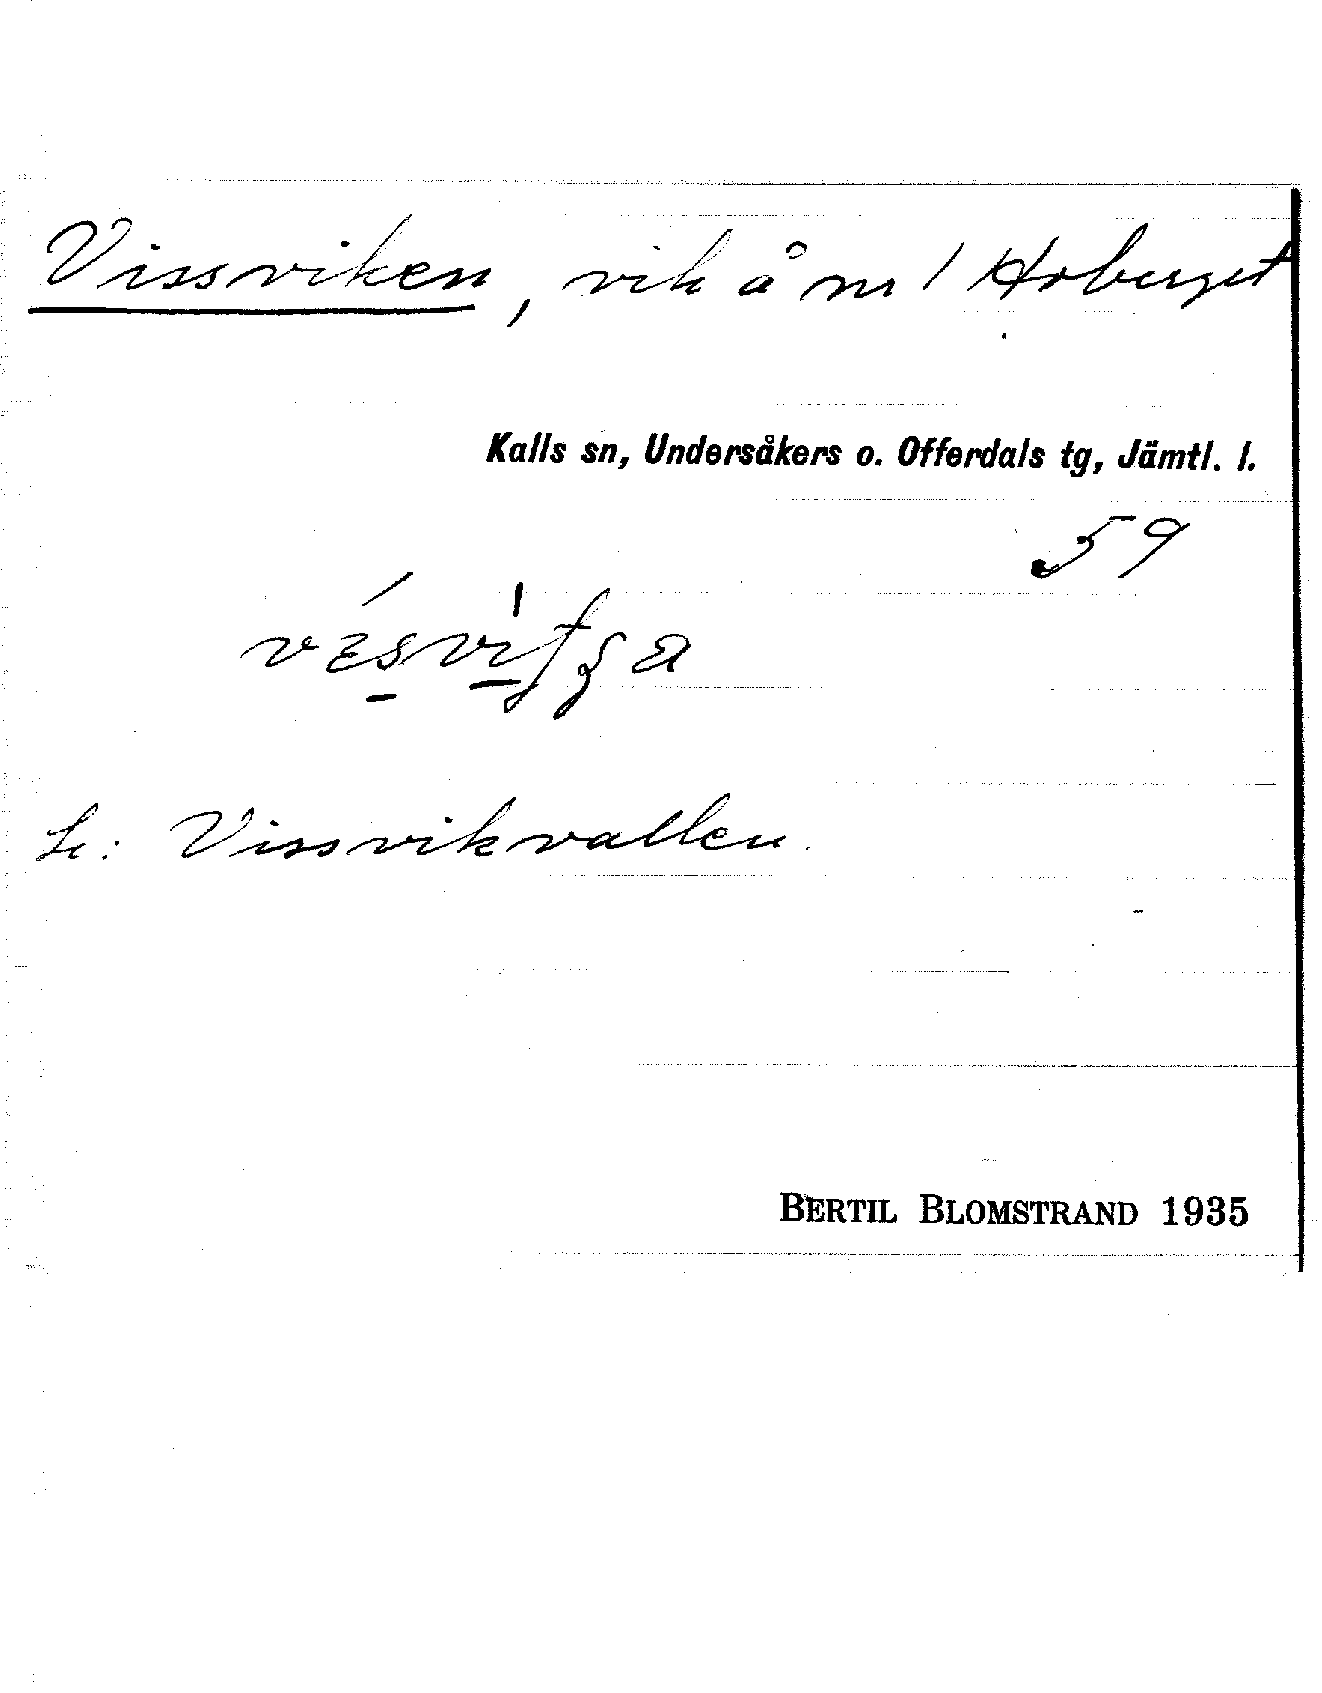 Vissviken, vik å nr 1 Hoberget
Kalls sn, Undersåkers o. Offerdals tg, Jämtl. l.
59
Se: Vissvikvallen.
BERTIL BLOMSTRAND 1935